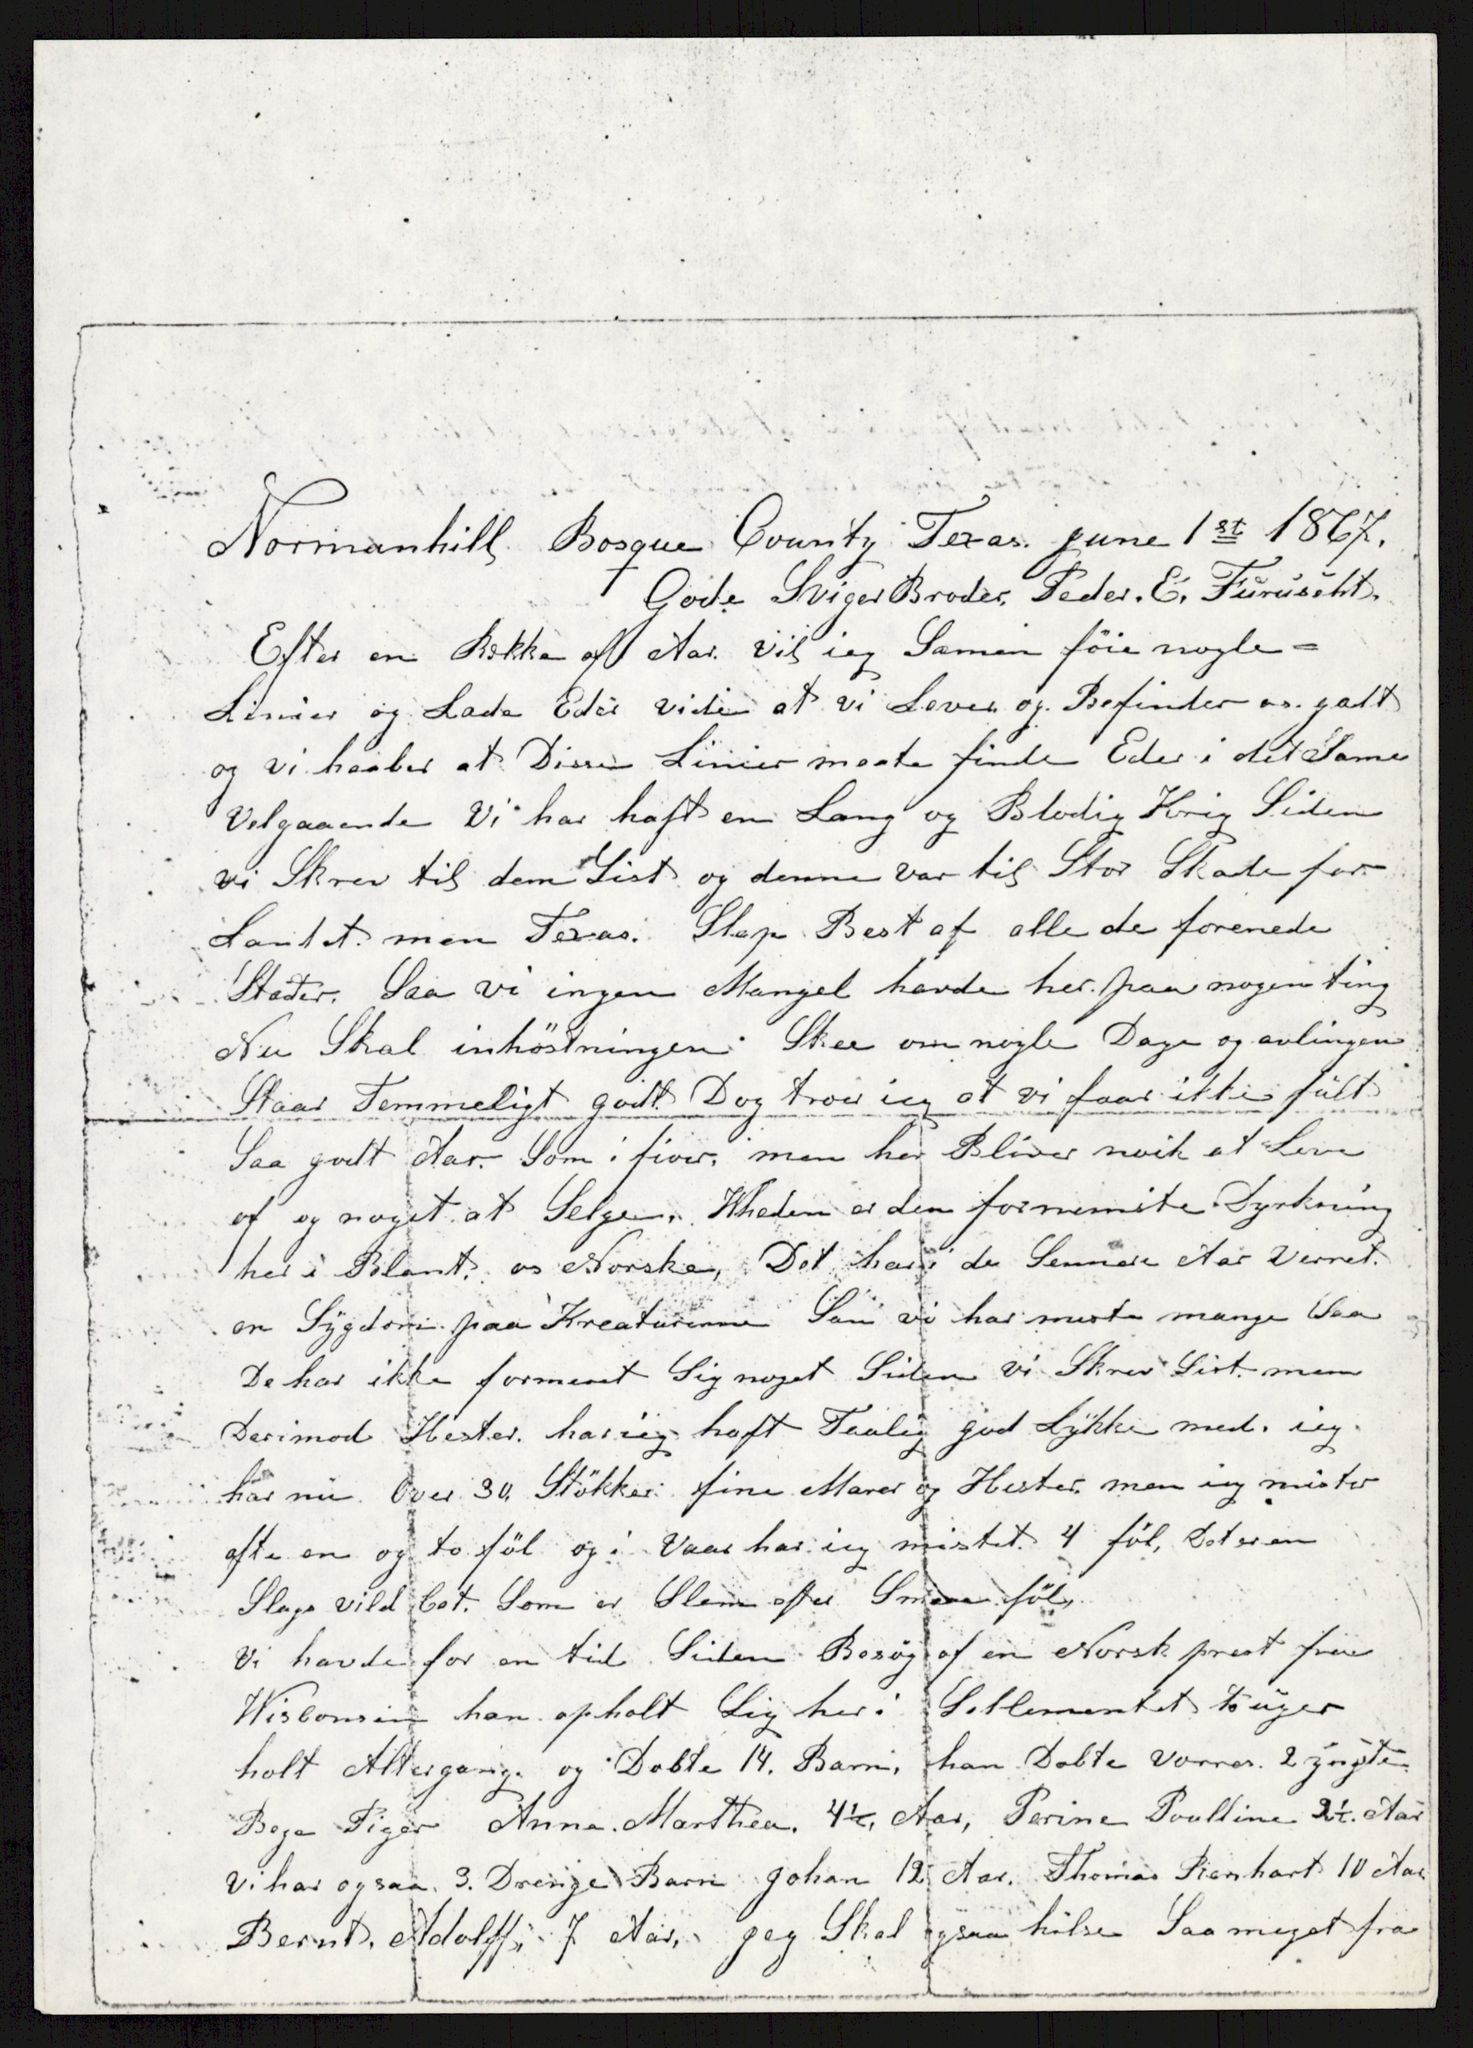 Normanhill Bosque County Texas. June 1st 1867.
Gode Sviger Broder. Peder. E. Furuseht.
Efter en Rekke af Aar vil ieg Samen föie nogle =
Linier og Lade Eder vide at vi Lever og Befinder os. gott
og vi haaber at Disse Linier maate finde Eder i det Same
Velgaaende Vi har haft en Lang og Blodig Krig Siden
vi Skrev til dem Sist og denne var til Stor Skade for
Landet. men Texas. Slap Best af alle de forenede
Stater. Saa vi ingen Mangel havde her paa nogen ting
Nu Skal inhöstningen Skee om nogle Dage og avlingen
Staar Temmeligt godt. Dog troer ieg at vi faar ikke fült
Saa godt Aar. Som i fior. men her Bliver noik at Leve
af og noget at Selge. Wheden er den fornemste Dyrkning
her i Blant. os Norske, Det har i de Sennere Aar verret
en Sÿgdom paa Kreaturenne San vi har miste mange Saa
De har ikke formeret Sig noget Siden vi Skrev Sist. men
Derimod Hester. har ieg haft Taalig god Lÿkke med. ieg
har nü Over 30. Stökker fine Marer og Hester. men ieg mister
ofte en og to föl og i Vaar har ieg mistet 4 föl, Det er en
Slags vild Cat. Som er Slem efter Smaa föl,
Vi havde for en tid Siden Besög af en Norsk prest fra
Wisconsin han opholt Sig her i Setlementet to üger
holt Altergang. og Dobte 14. Barn, han Dobte vorres. 2 ÿngste
Bege Piger Anna. Marthea. 4½, Aar, Perine Poulline 2½. Aar
Vi har ogsaa. 3. Drenge Barn Johan 12 Aar. Thomas Rienhart 10 Aar
Bernt. Adolff, 7 Aar, jeg Skal ogsaa hilse Saa meget fra